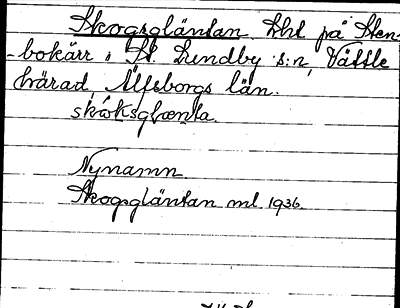 Skogsgläntan. Lht på Sten-
-bokärr i St. Lundby s:n, Vättle
härad, Älfsborgs län.
skɷksglænta
Nynamn
Skogsgläntan ml 1936.